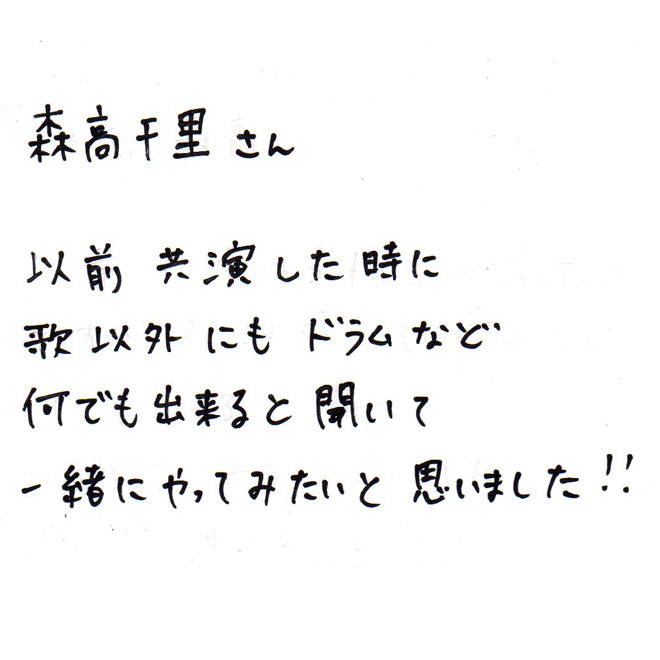 森高千里さん
以前 共演した時に
歌以外にも ドラムなど
何でも出来ると聞いて
一緒にやってみたいと 思いました!!